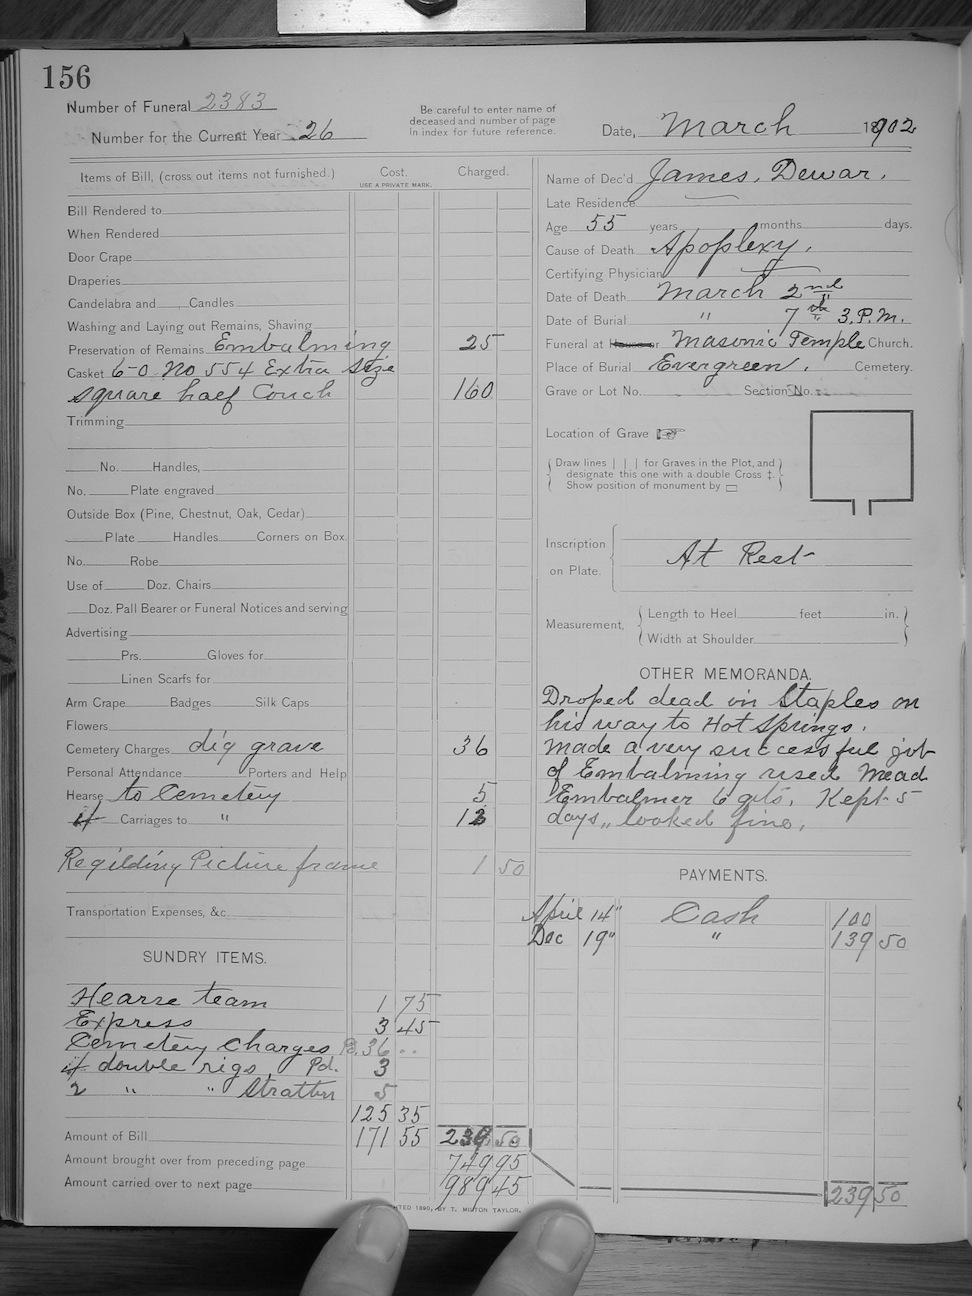 156
Number of Funeral 2383
Number for the Current Year 26
Be careful to enter name of
deceased and number of page
in index for future reference.
Date, March 1902
Items of Bill, (cross out items not furnished.) Cost. Charged.
USE A PRIVATE MARK.
Bill Rendered to
When Rendered
Door Crape
Draperies
Candelabra and Candles
Washing and Laying out Remains, Shaving
Preservation of Remains Embalming 25
Casket 6-0 No 554 Extra Size
square half Couch 160
Trimming
No. Handles,
No. Plate engraved
Outside Box (Pine, Chestnut, Oak, Cedar)
Plate Handles Corners on Box.
No. Robe
Use of Doz. Chairs
Doz. Pall Bearer or Funeral Notices and serving
Advertising
Prs. Gloves for
Linen Scarfs for
Arm Crape Badges Silk Caps
Flowers
Cemetery Charges dig grave 36
Personal Attendance Porters and Help
Hearse to Cemetery 5
Carriages to " 12
Regilding Picture frame 1 50
Transportation Expenses, &c.
SUNDRY ITEMS.
Hearse team 1 75
Express 3 45
Cemetery Charges Pd. 36 ..
double rigs, Pd. 3
2 " " Stratton 5
125 35
Amount of Bill 171 55 239 50
Amount brought over from preceding page 749 95
Amount carried over to next page 989 45
Name of Dec'd James, Dewar.
Late Residence
Age 55 years months days.
Cause of Death Apoplexy.
Certifying Physician
Date of Death March 2nd
Date of Burial " 7th 3. P.M.
Funeral at House or Masonic Temple Church.
Place of Burial Evergreen. Cemetery.
Grave or Lot No. Section No.
Location of Grave ☞
Draw lines | | | for Graves in the Plot, and
designate this one with a double Cross ‡.
Show position of monument by ▭
Inscription
on Plate.
At Rest
Measurement,
Length to Heel feet in.
Width at Shoulder
OTHER MEMORANDA.
Droped dead in Staples on
his way to Hot Springs.
Made a very successful job
of Embalming used Mead
Embalmer 6 qts. Kept 5
days,, looked fine.
PAYMENTS.
April 14" Cash 100
Dec 19" " 139 50
239 50
BY T. MILTON TAYLOR.